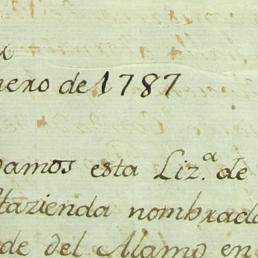 nero de 1787
damos esta Liz.ª de
Hazienda nombrada
de del Alamo en